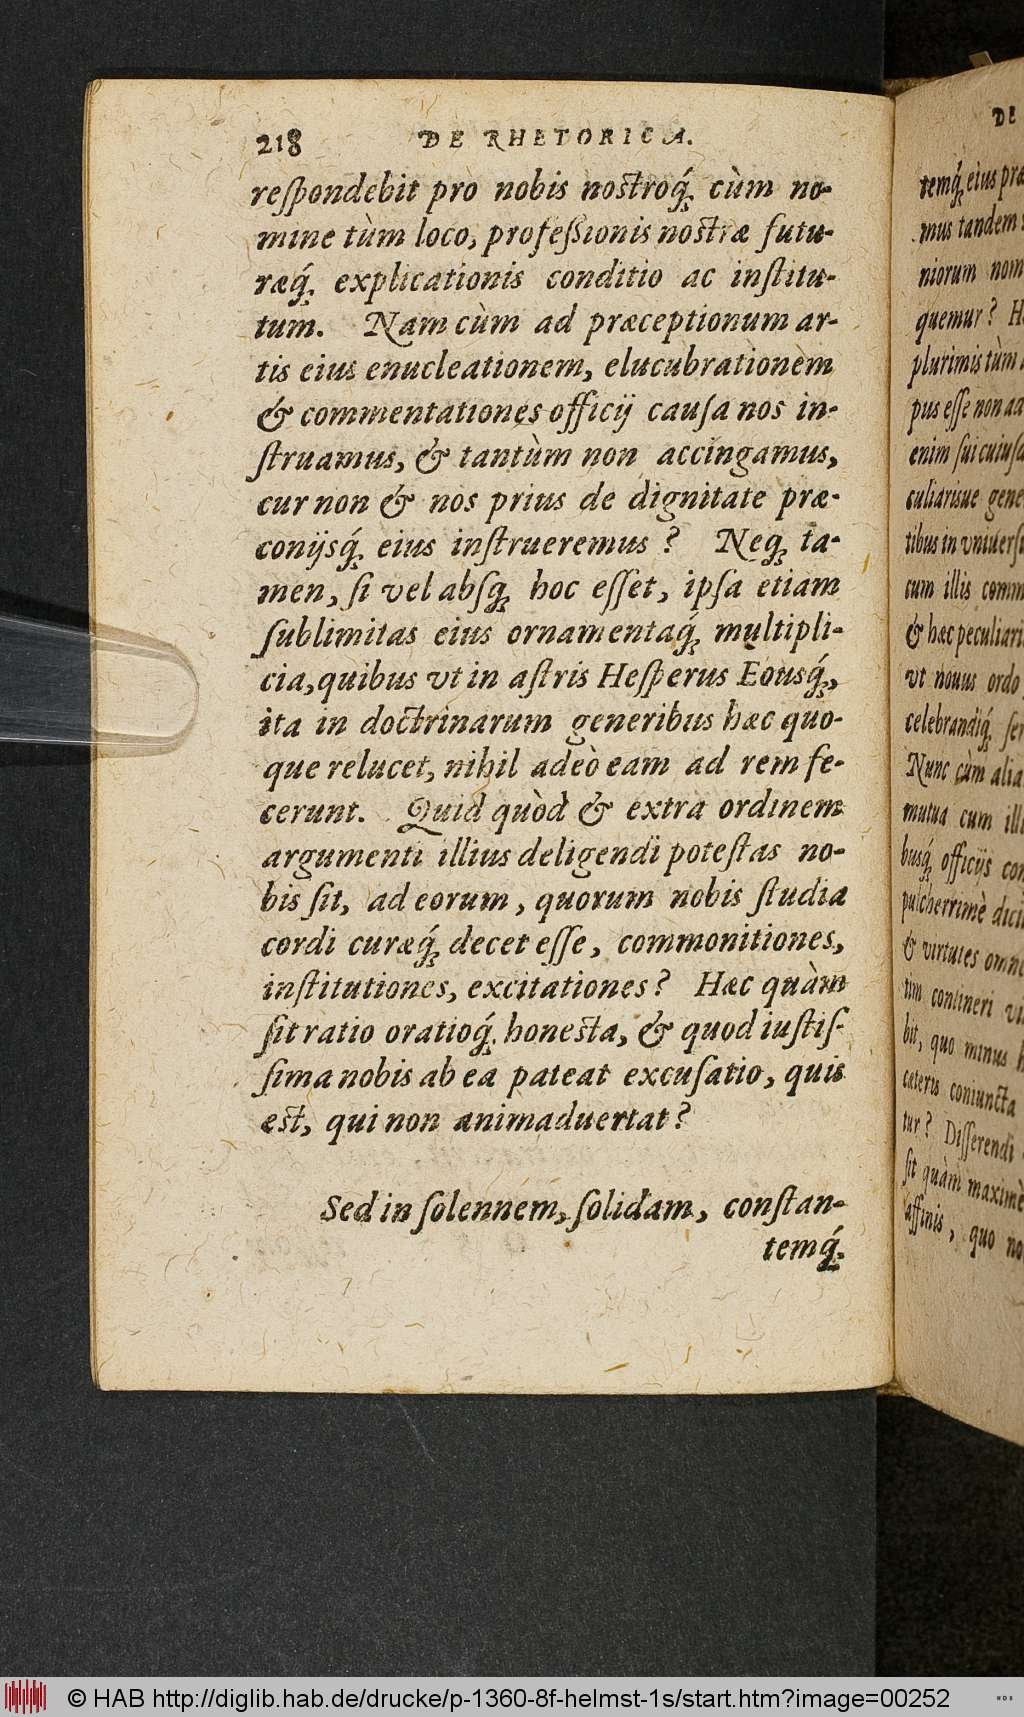 218 DE RHETORICA.
reſpondebit pro nobis noſtroq́; cùm no-
mine tùm loco, profeſsionis noſtræ futu-
ræq́; explicationis conditio ac inſtitu-
tum. Nam cùm ad præceptionum ar-
tis eius enucleationem, elucubrationem
& commentationes officij cauſa nos in-
ſtruamus, & tantùm non accingamus,
cur non & nos prius de dignitate præ-
conijsq́; eius inſtrueremus? Neq; ta-
men, ſi vel absq; hoc eſſet, ipſa etiam
ſublimitas eius ornamentaq́; multipli-
cia, quibus vt in aſtris Heſperus Eousq́;,
ita in doctrinarum generibus hæc quo-
que relucet, nihil adeò eam ad rem fe-
cerunt. Quid quòd & extra ordinem
argumenti illius deligendi poteſtas no-
bis ſit, ad eorum, quorum nobis ſtudia
cordi curæq́; decet eſſe, commonitiones,
inſtitutiones, excitationes? Hæc quàm
ſit ratio oratioq́; honeſta, & quod iuſtiſ-
ſima nobis ab ea pateat excuſatio, quis
eſt, qui non animaduertat?
Sed in ſolennem, ſolidam, conſtan-
temq́;
DE
temq́; eius præ
mus tandem
niorum nom
quemur? H
plurimis tùm
pus eſſe non aa
enim ſui cuiuſ
culiarisue gene
tibus in vniuerſ
cum illis comm
& hæc peculiari
vt nouus ordo
celebrandiq́; ſer
Nunc cùm alia
mutua cum ill
busq́; officijs con
pulcherrimè dici
& virtutes omne
tim contineri
bit, quo minus
cæteris coniuncta
tur? Diſſerendi
ſit quàm maximè
affinis, quo no
© HAB http://diglib.hab.de/drucke/p-1360-8f-helmst-1s/start.htm?image=00252